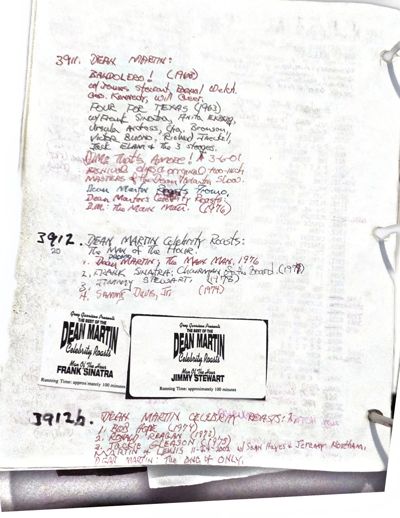 3911. DEAN MARTIN:
BANDOLERO! (1968)
w/ James Stewart, Raquel Welch,
Geo. Kennedy, Will Geer.
FOUR FOR TEXAS (1963)
w/ Frank Sinatra, Anita Ekberg,
Ursula Andress, Chas. Bronson,
Victor Buono, Richard Jaeckel,
Jack Elam & the 3 stooges.
Dino: That's Amore! 3-6-01.
original two-inch
MASTERS of the Dean Martin Show.
Dean Martin Roasts Promo,
Dean Martin's Celebrity Roasts:
D.M.: The Man. (1976)
3912. DEAN MARTIN Celebrity Roasts:
20 The Man of the Hour
1. Dean MARTIN, The Main Man, 1976
2. FRANK SINATRA: Chairman Board. (1978)
3. JIMMY STEWART, (1978)
4. SAMMY DAVIS, Jr. (1974)
Greg Garrison Presents
THE BEST OF THE
DEAN MARTIN
Celebrity Roasts
Man Of The Hour
FRANK SINATRA
Running Time: approximately 100 minutes
Greg Garrison Presents
THE BEST OF THE
DEAN MARTIN
Celebrity Roasts
Man Of The Hour
JIMMY STEWART
Running Time: approximately 100 minutes
3912b. DEAN MARTIN CELEBRITY ROASTS:
1. BOB HOPE (1974)
2. RONALD REAGAN (1973)
3. JACKIE GLEASON (1975)
MARTIN & LEWIS 2002 w/ Sean Hayes & Jeremy Northam,
DEAN MARTIN: THE ONE & ONLY,